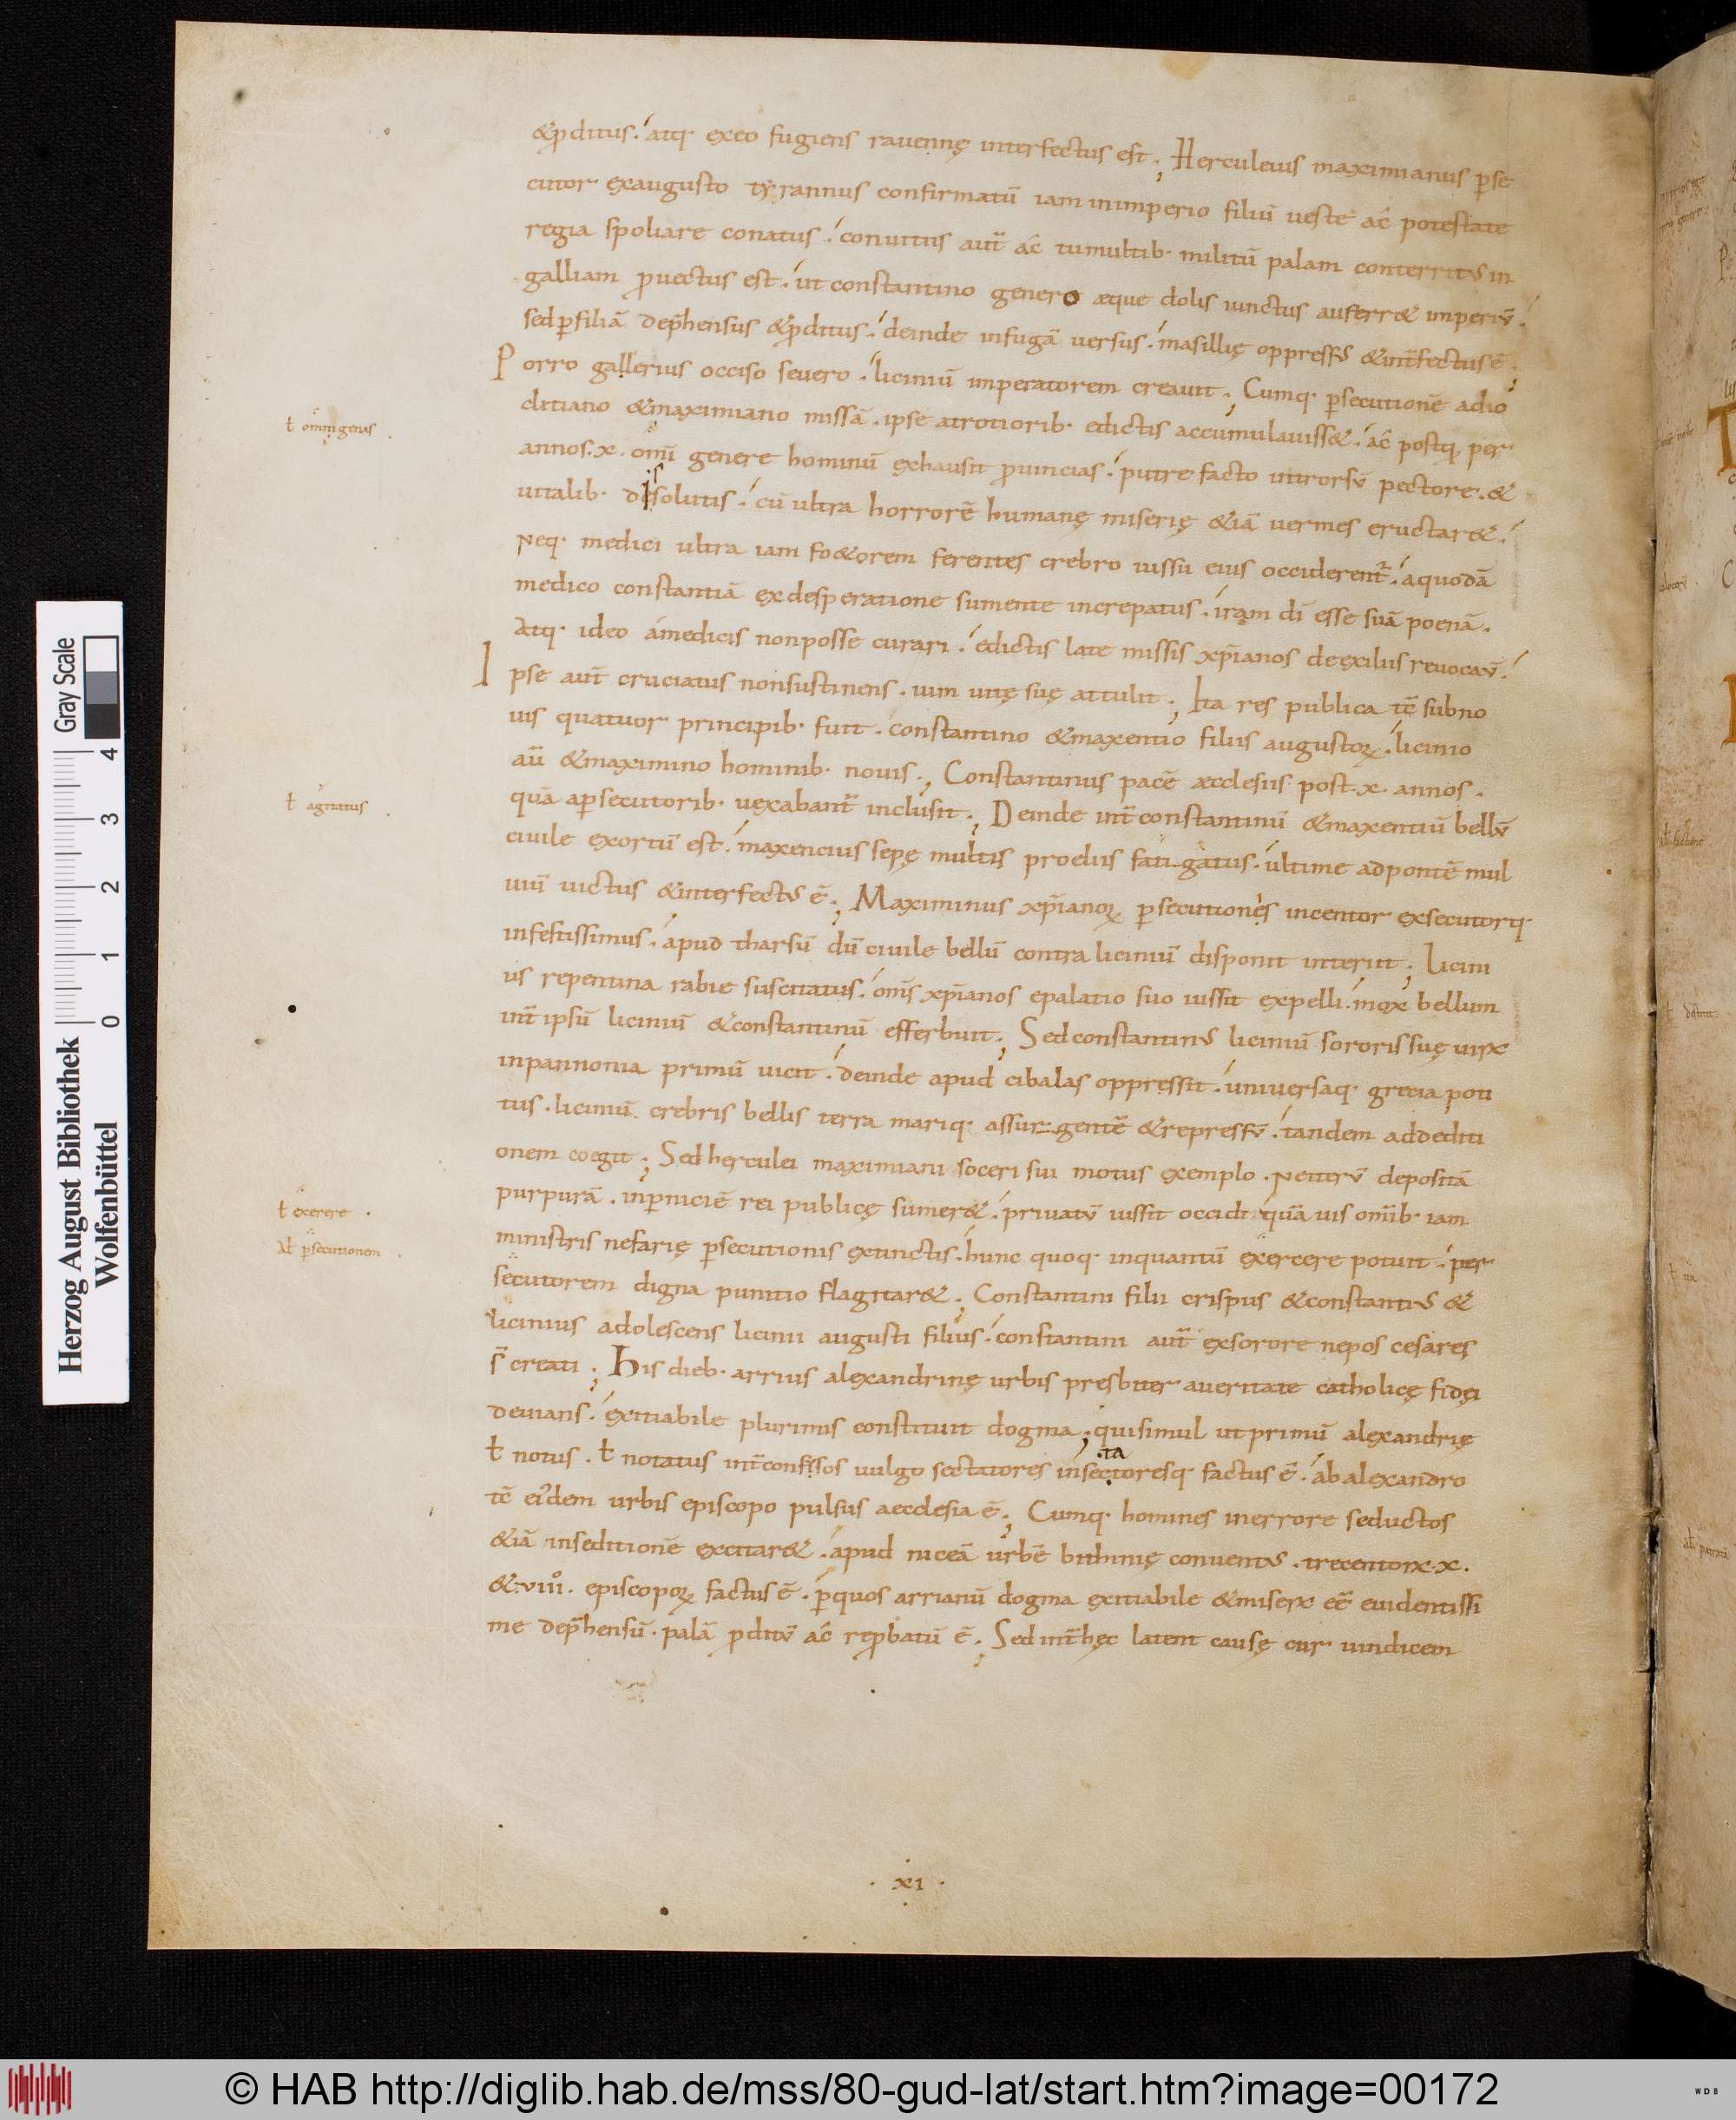 &ꝓditus. atq· exeo fugiens rauennę interfectus est; Herculeius maximianus ꝑse
cutor exaugusto tyrannus confirmatū iam inimperio filiū ueste ac potestate
regia spoliare conatus. conuitiis aut̄ ac tumultib· militū palam conterritus in
galliam ꝓuectus est. ut constantino genero æque dolis iunctus auferr& imperiū.
sed ꝑfiliā dep̄hensus &ꝓditus. deinde infugā uersus. masillię oppressus &int̄fectus ē;
Porro gallerius occiso seuero. liciniū imperatorem creauit; Cumq· ꝑsecutionē adio
clitiano &maximiano missā. ipse atrotiorib· edictis accumulauiss&. ac postq̄ per
annos .x. omī genere hominū exhausit ꝓuincias. putre facto introrsū pectore. &
uitalib· dissolutis. cū ultra horrorē humanę miserię &iā uermes eructar&.
Neq· medici ultra iam fo&orem ferentes crebro iussu eius occiderent̄. aquodā
medico constantiā exdesperatione sumente increpatus. iram dī esse suā poenā.
Atq· ideo amedicis nonposse curari. edictis late missis xp̄ianos deexiliis reuocau̅.
Ipse aut̄ cruciatus nonsustinens. uim uitę suę attulit; Ita res publica tc̄ subno
uis quatuor principib· fuit. constantino &maxentio filiis augustoꝝ. licinio
aū &maximino hominib· nouis; Constantinus pacē æcclesiis post .x. annos.
quā aꝑsecutorib· uexabant̄ inclusit; Deinde int̄ constantinū &maxentiū bellū
ciuile exortū est. maxencius sepę multis proeliis fatigatus. ultime adpontē mul
uiū uictus &interfectus ē; Maximinus xp̄ianoꝝ ꝑsecutionēs incentor exsecutorq·
infestissimus. apud tharsū dū ciuile bellū contra liciniū disponit interiit; Licini
us repentina rabie suscitatus. om̄s xp̄ianos epalatio suo iussit expelli. mox bellum
int̄ ipsū liciniū &constantinū efferbuit; Sed constantinus liciniū sororis suę uirx
inpannonia primū uicit. deinde apud cibalas oppressit. uniuersaq· grecia poti
tus. liciniū crebris bellis terra mariq· assurgentē &repressū. tandem addediti
onem coegit; Sed herculei maximiani soceri sui motus exemplo. Neiterū depositā
purpurā. inꝑniciē rei publicę sumer&. priuatū iussit occidi. quāuis om̄ib· iam
ministris nefarię ꝑsecutionis extinctis. hunc quoq· inquantū exercere potuit. per
secutorem digna punitio flagitar&; Constantini filii crispus &constantius &
licinius adolescens licinii augusti filius. constantini aut̄ exsorore nepos cesares
s̄ creati; His dieb· arrius alexandrinę urbis presbiter aueritate catholicę fidei
deuians. exitiabile plurimis constituit dogma; quisimul ut primū alexandrię
ł notus. ł notatus int̄ confisos uulgo sectatores insectatoresq· factus ē. ab alexandro
tc̄ eiusdem urbis episcopo pulsus aecclesia ē; Cumq· homines inerrore seductos
&iā inseditionē excitar&. apud niceā urbē bithinię conuentus. trecentorx .x.
& .viiiº. episcopoꝝ factus ē. ꝑquos arrianū dogma exitiabile &miserx eē euidentissi
me dep̄hensū. palā ꝓditū ac reꝓbatū ē; Sed int̄ hęc latent causę cur uindicem
ł omnigenus.
ł agitatus.
ł exerere.
ał ꝑsecutionem.
· xi ·
Herzog August Bibliothek
Wolfenbüttel
Gray Scale
0 1 2 3 4
© HAB http://diglib.hab.de/mss/80-gud-lat/start.htm?image=00172
WDB